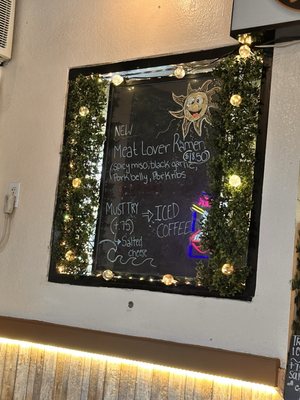 NEW
Meat Lover Ramen
(spicy miso, black garlic, $18.50
Pork belly, Pork ribs
MUST TRY
(4.75) → ICED
COFFEE
→ Salted
cheese